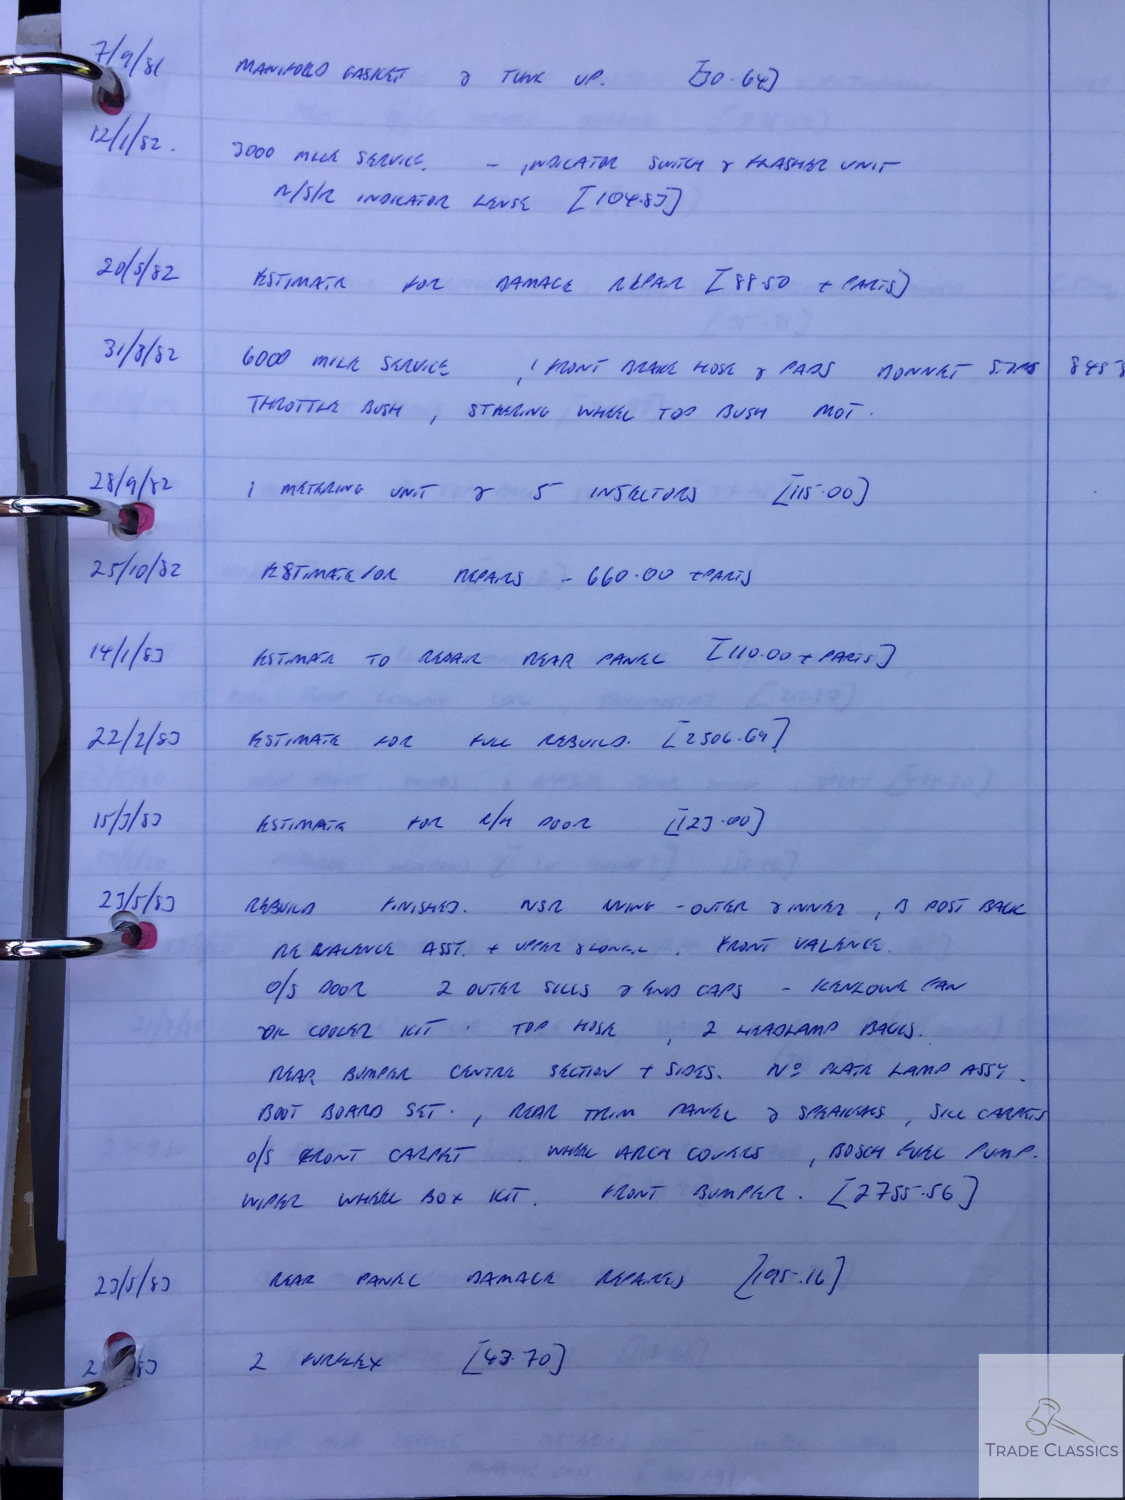 7/9/81 MANIFOLD GASKET & TUNE UP. [30.64]
12/1/82. 3000 MILE SERVICE. - INDICATOR SWITCH & FLASHER UNIT
N/S/R INDICATOR LENSE [104.83]
20/5/82 ESTIMATE FOR DAMAGE REPAIR [88.50 + PARTS]
31/8/82 6000 MILE SERVICE , 1 FRONT BRAKE HOSE & PADS BONNET
THROTTLE BUSH, STEERING WHEEL TOP BUSH MOT.
28/9/82 1 METERING UNIT & 5 INJECTORS [115.00]
25/10/82 ESTIMATE FOR REPAIRS - 660.00 + PARTS
14/1/83 ESTIMATE TO REPAIR REAR PANEL [110.00 + PARTS]
22/2/83 ESTIMATE FOR FULL REBUILD. [2506.69]
15/3/83 ESTIMATE FOR R/H DOOR [123.00]
23/5/83 REBUILD FINISHED. NSR WING - OUTER & INNER, B POST BACK
RE VALENCE ASST. + UPPER & LOWER. FRONT VALENCE.
O/S DOOR 2 OUTER SILLS & END CAPS - KENLOWE FAN
OIL COOLER KIT. TOP HOSE, 2 HEADLAMP BACKS.
REAR BUMPER CENTRE SECTION + SIDES. Nº PLATE LAMP ASSY.
BOOT BOARD SET., REAR TRIM PANEL & SPEAKERS, SILL CARPETS
O/S FRONT CARPET WHEEL ARCH COVERS, BOSCH FUEL PUMP.
WIPER WHEEL BOX KIT. FRONT BUMPER. [2755.56]
23/5/83 REAR PANEL DAMAGE REPAIRS [195.16]
83 2 [43.70]
TRADE CLASSICS